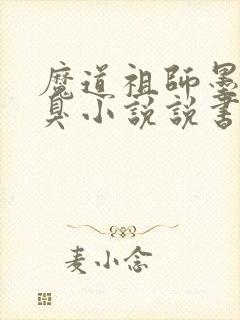 魔道祖師墨
具小說說書
麦小念